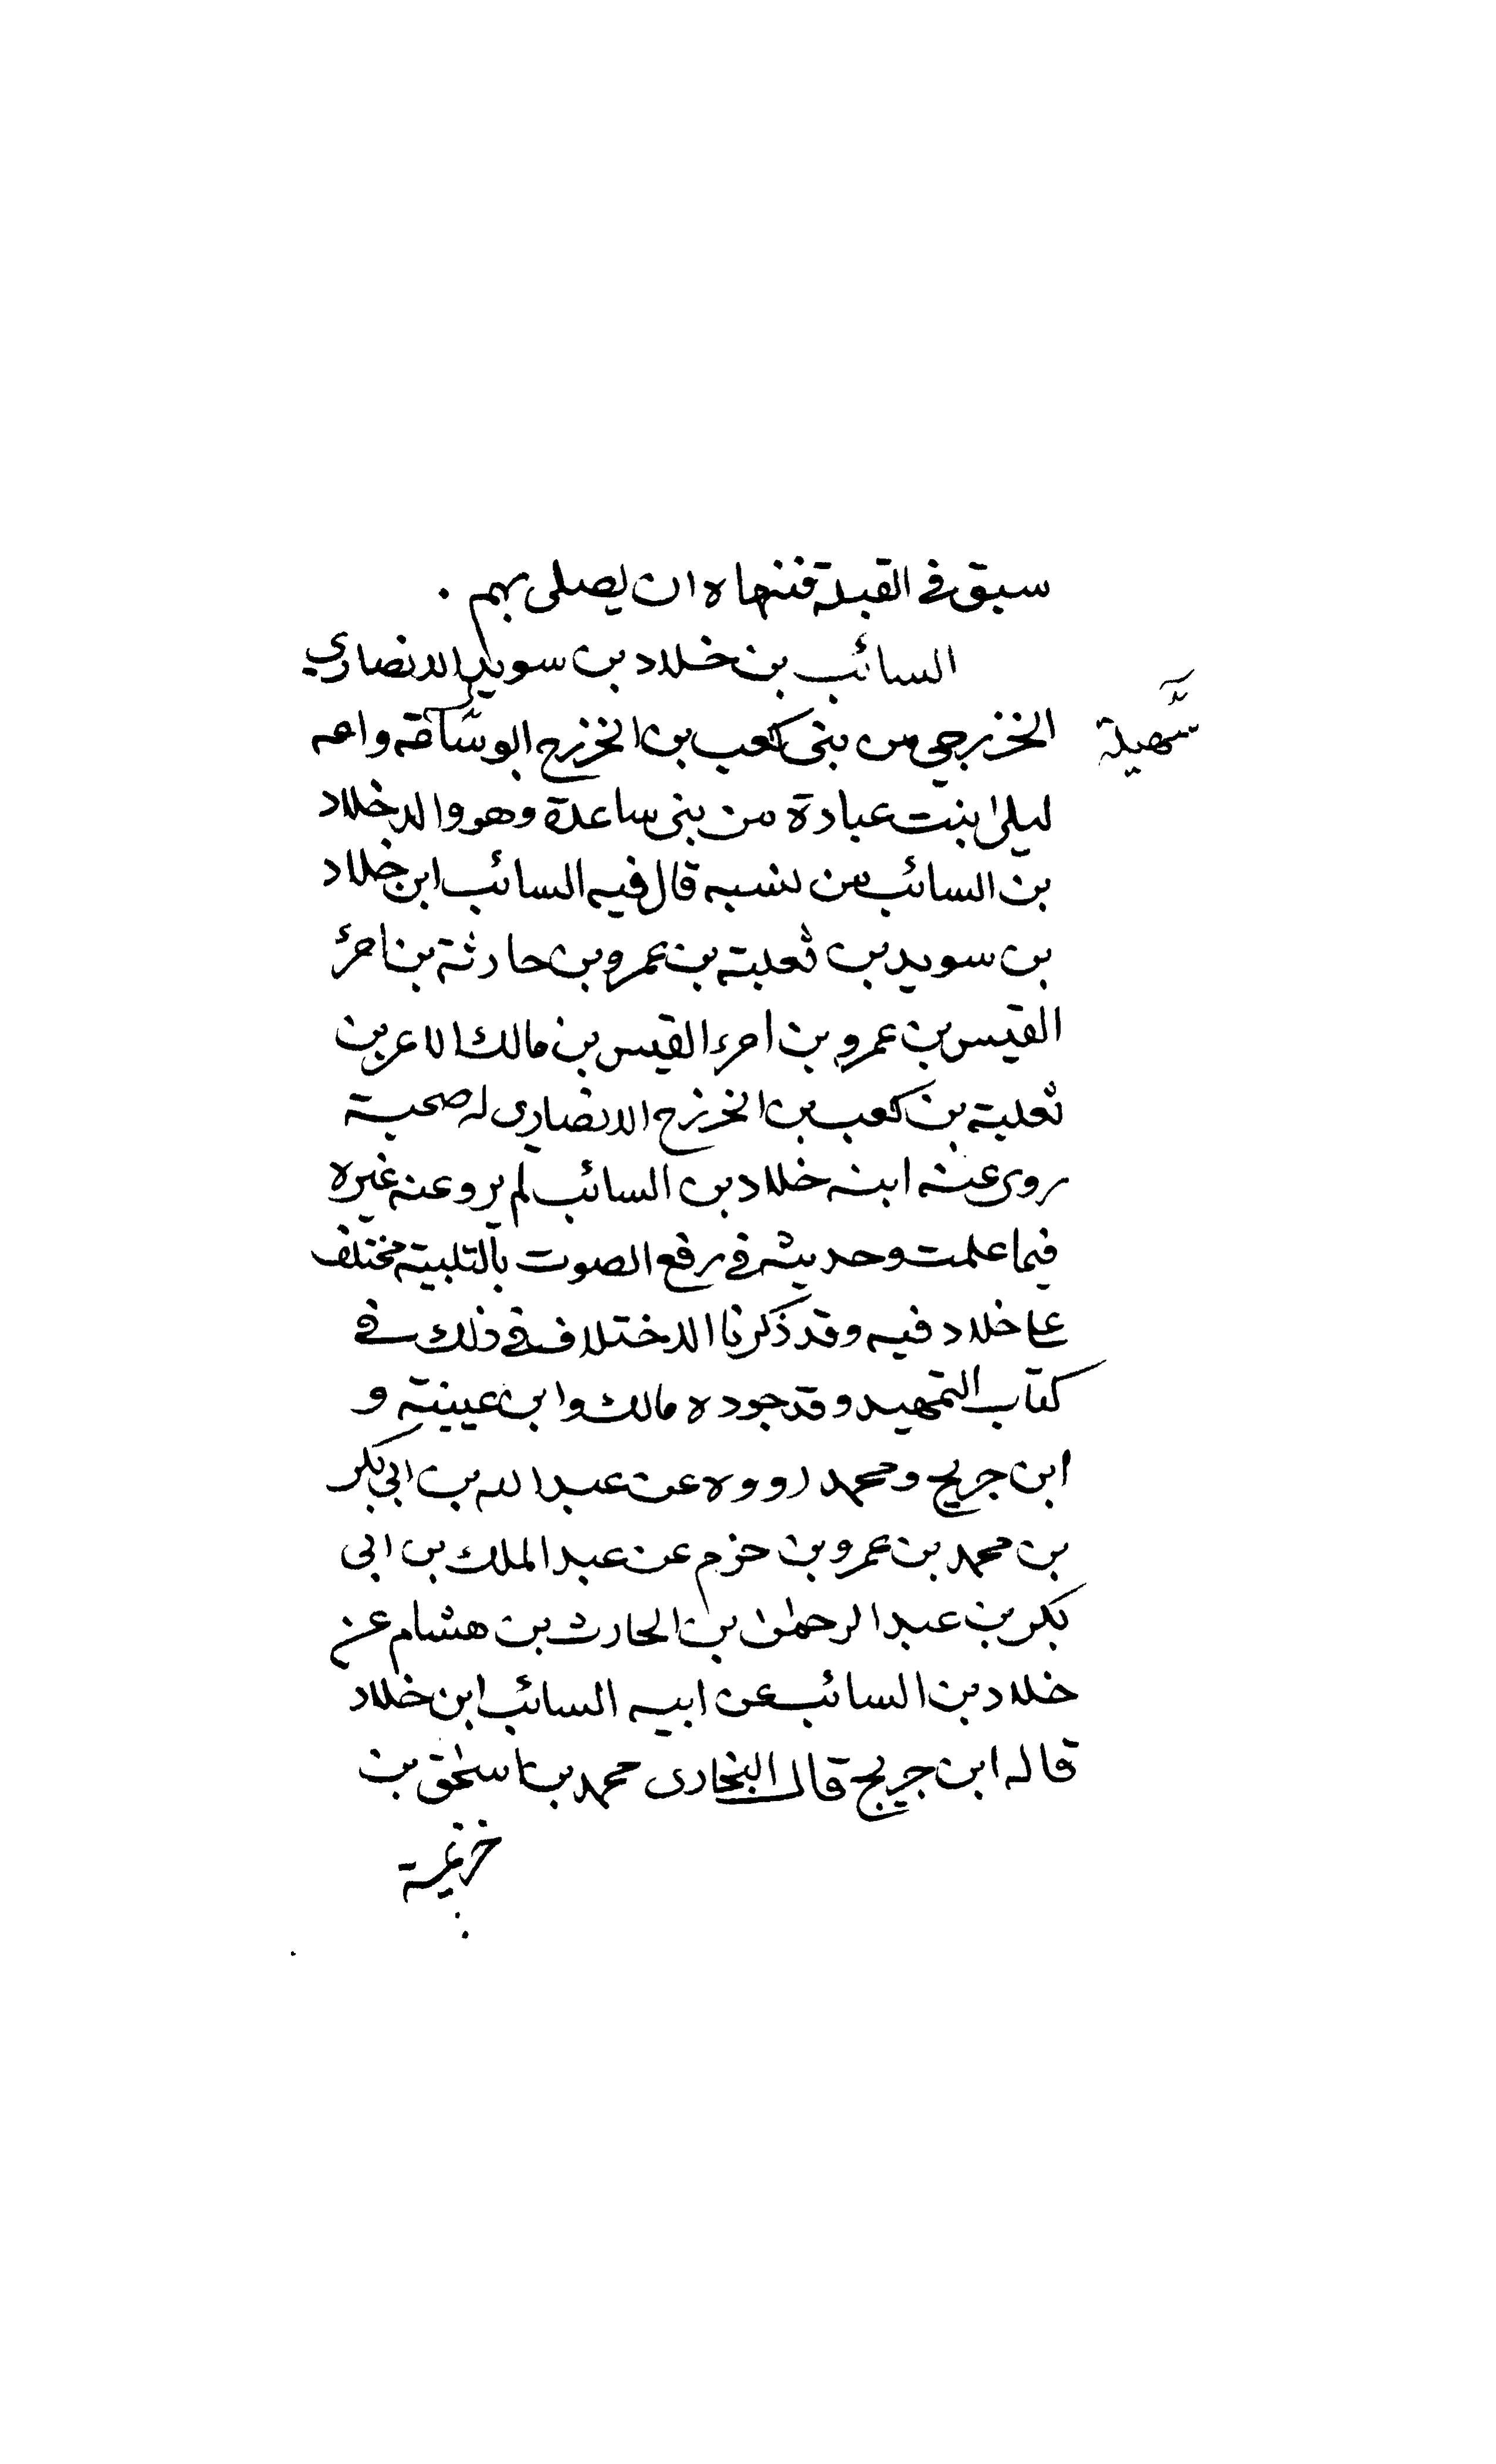 سبق في القبلة فنهاه ان يصلى بهم .
السائب بن خلاد بن سويد الانصاري
الخزرجي من بنى كعب بن الخزرج ابو وامه
سهيلة
ليلى بنت عبادة من بنى ساعدة وهو والد خلاد
بن السائب من نسبه قال فيه السائب ابن خلاد
بن سويد بن ثعلبة بن عمرو بن حارثة بن امرئ
القيس بن عمرو بن امرء القيس بن مالك الاعر بن
ثعلبة بن كعب بن الخزرج الانصارى له صحبة
روى عنه ابنه خلاد بن السائب لم يرو عنه غيره
فيما علمت وحديثه فى رفع الصوت بالتلبية مختلف
على خلاد فيه وقد ذكرنا الاختلاف فى ذلك فى
كتاب التمهيد وقد جوده مالك وابن عيينة و
ابن جريج ومحمد رووه عن عبد الله بن ابى بكر
بن محمد بن عمرو بن حزم عن عبد الملك بن ابى
بكر بن عبد الرحمن بن الحارث بن هشام عن
خلاد بن السائب عن ابيه السائب ابن خلاد
قاله ابن جريج قال البخارى محمد بن اسحق بن
خزيمة